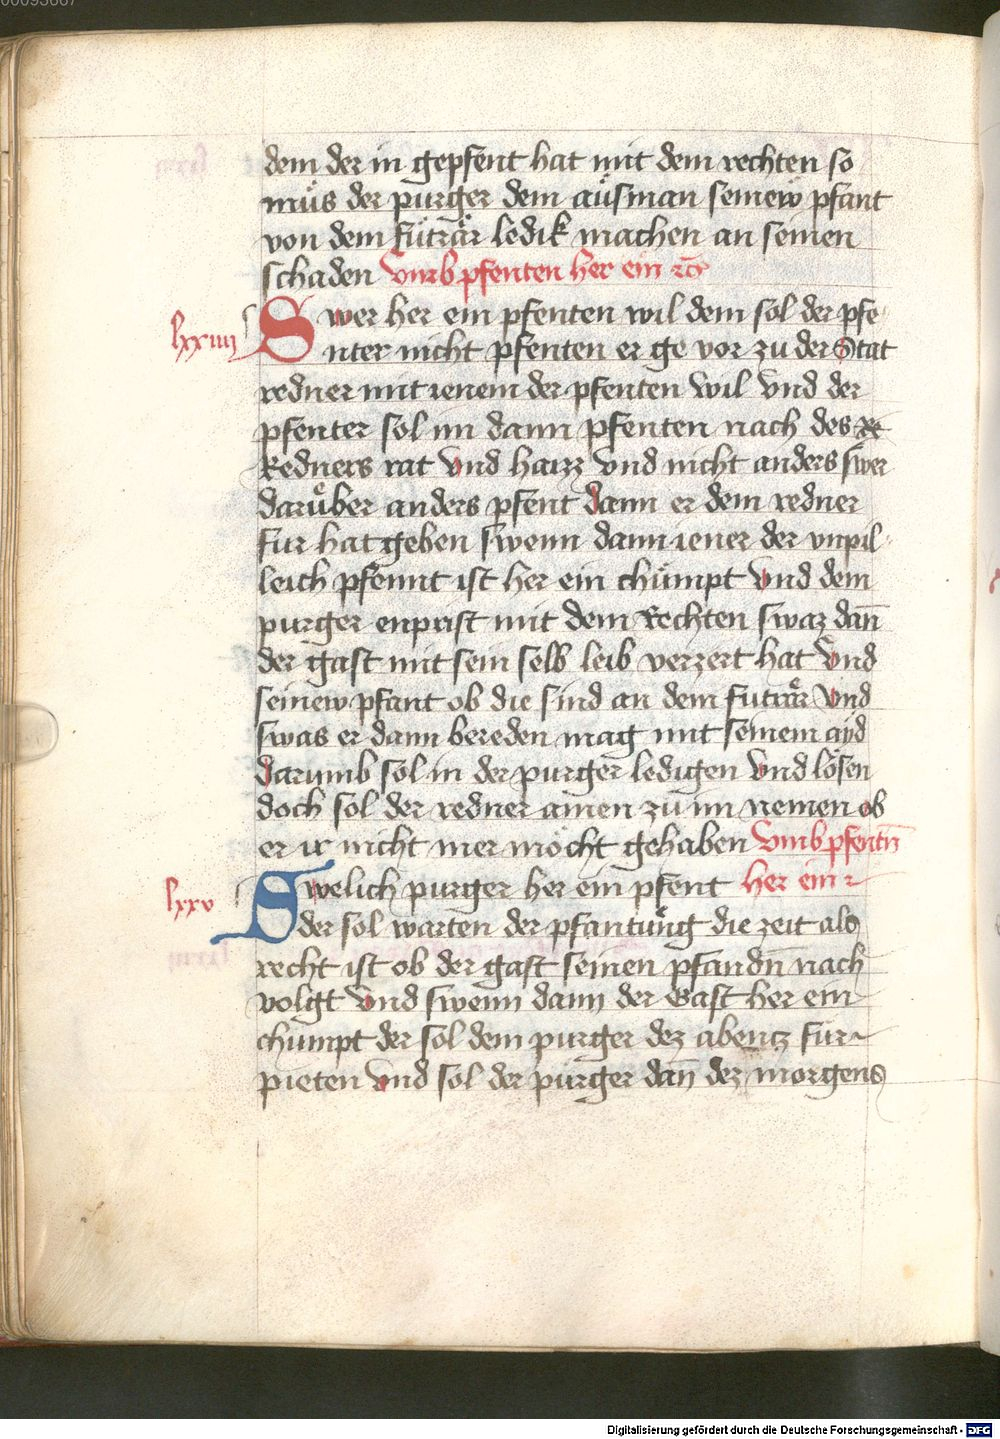 dem der in gepfent hat mit dem rechten so
muͤs der purger dem aûsman seinew pfant
von dem fûtrâr ledik machen an seinen
schaden Vmb pfenten her ein rc̄
lxxiiii Swer her ein pfenten wil dem sol der pfe-
nter nicht pfenten er ge vor zu der Stat
redner mit ienem der pfenten wil vnd der
pfenter sol im dann pfenten nach des Re
Redners rat vnd haizz vnd nicht anders swer
daruͤber anders pfent dann er dem redner
fur hat geben swenn dann iener der vnpil-
leich pfennt ist her ein chuͤmpt vnd dem
purger enprist mit dem Rechten swaz dan̄
der gast mit sein selb leib verzert hat vnd
seinew pfant ob die sind an dem futrår Vnd
swas er dann bereden mag mit seinem ayd
darumb sol in der purger ledigen vnd lösen
doch sol der redner ainen zu im nemen ob
er ir nicht mer möcht gehaben Vmb pfentn̄
lxxv Swelich purger her ein pfent her ein
der sol warten der pfantuͤng die zeit als
recht ist ob der gast seinen pfandn̄ nach
volgt vnd swenn dann der Gast her ein
chumpt der sol dem purger dez abentz für
pieten vnd sol der purger dan̄ dez morgens
Digitalisierung gefördert durch die Deutsche Forschungsgemeinschaft - DFG